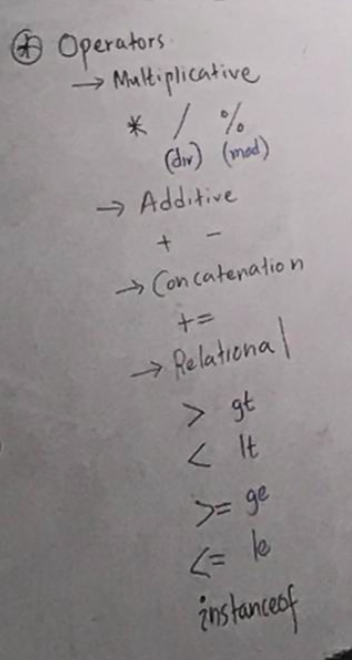 ⊛ Operators
→ Multiplicative
* / %
(div) (mod)
→ Additive
+ -
→ Concatenation
+=
→ Relational
> gt
< lt
>= ge
<= le
instanceof